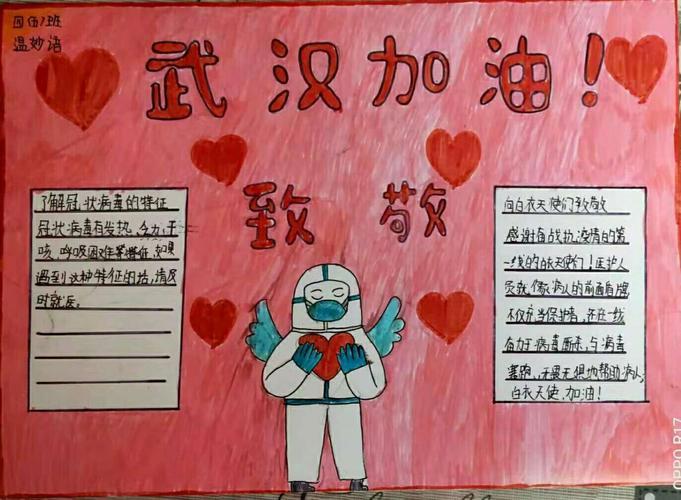 四(5)班
温妙语
武汉加油!
致敬
了解冠状病毒的特征
冠状病毒有发热、乏力、干
咳、呼吸困难等特征,如果
遇到这种特征的话,请及
时就医。
向白衣天使们致敬
感谢奋战抗疫情的第
一线的白衣天使们!医护人
员就像病人的前面盾牌
不仅担当保护墙,还在一线
合力于病毒厮杀,与病毒
赛跑,无畏无惧地帮助病人,
白衣天使,加油!
OPPO R17